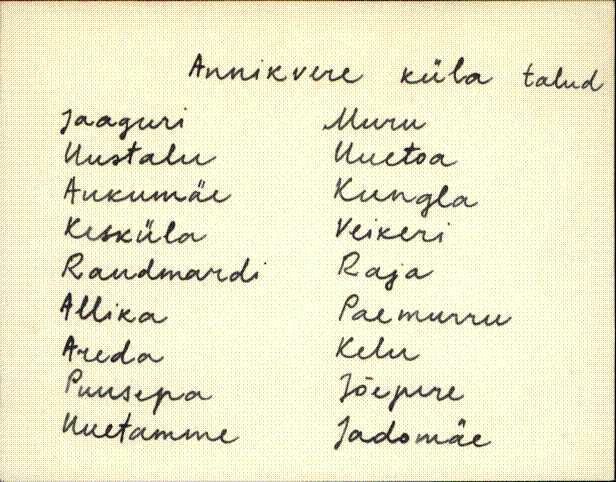 Annikvere küla talud
Jaaguri
Uustalu
Aukumäe
Kesküla
Raudmardi
Allika
Areda
Puusepa
Uuetamme
Muru
Uuetoa
Kungla
Veikeri
Raja
Paemurru
Kelu
Jõepere
Jadomäe